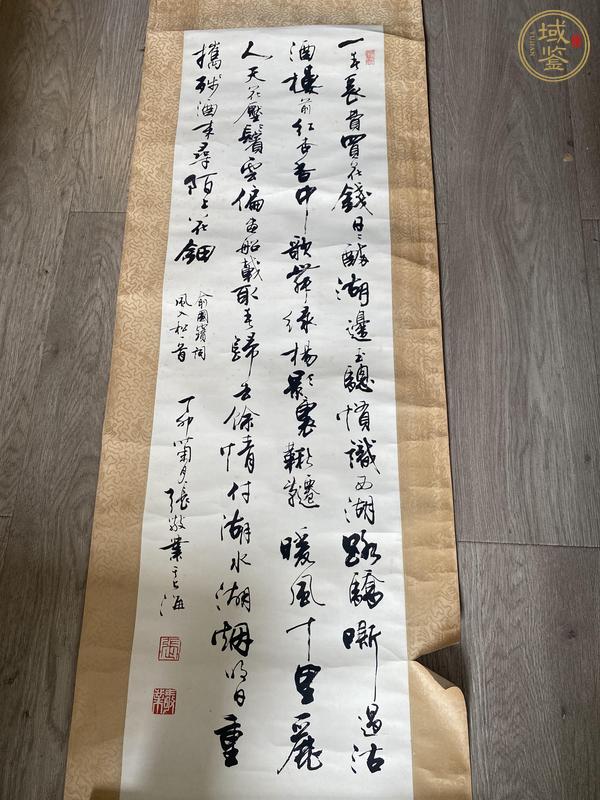 一春長費買花錢日々醉湖邊玉驄慣識西湖路驕嘶過沽
酒樓前紅杏香中歌舞綠楊影裏鞦韆暖風十里麗
人天花壓鬢雲偏畫船載取春歸去餘情付湖水湖烟明日重
攜殘酒來尋陌上花鈿
俞國寶詞
風入松一首
丁卯菊月張敬業於上海
敬業
域鉴
YUJIAN